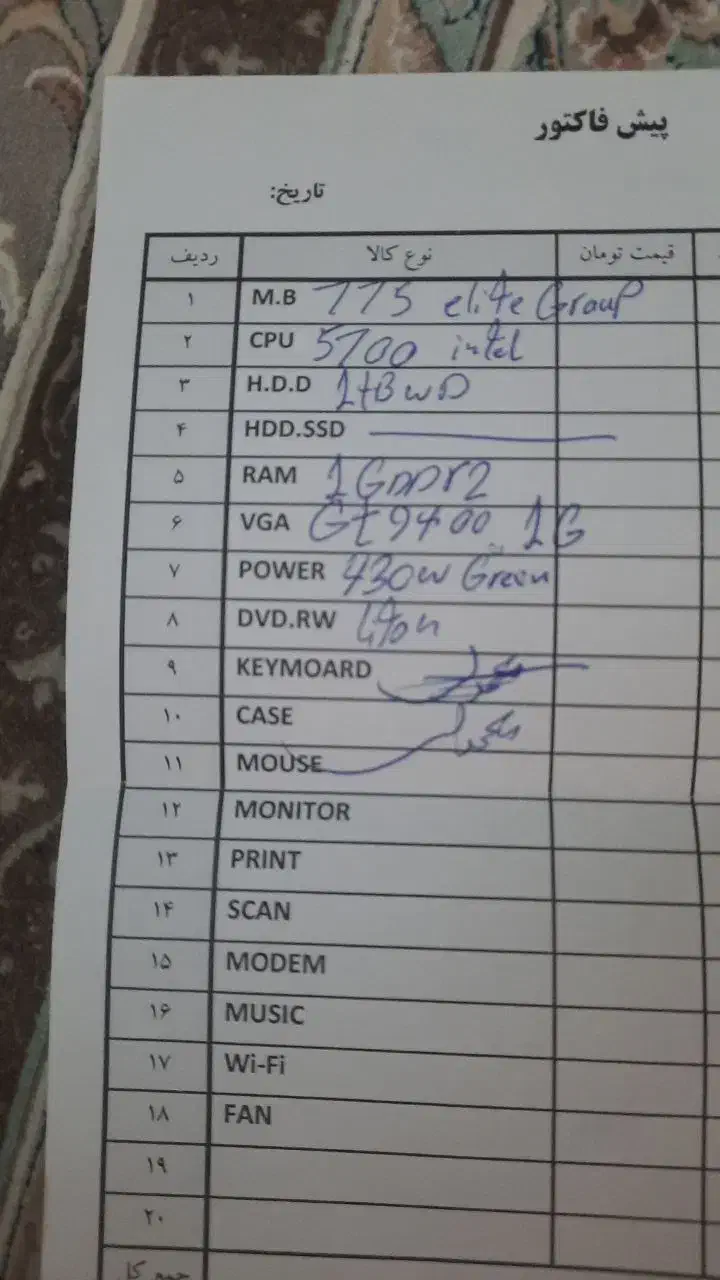 پیش فاکتور
تاریخ:
ردیف نوع کالا قیمت تومان
۱ M.B 775 elite Group
۲ CPU 5700 intel
۳ H.D.D 1tB wD
۴ HDD.SSD
۵ RAM 1G DDr2
۶ VGA Gt 9400 1G
۷ POWER 430w Green
۸ DVD.RW liton
۹ KEYMOARD
۱۰ CASE
۱۱ MOUSE
۱۲ MONITOR
۱۳ PRINT
۱۴ SCAN
۱۵ MODEM
۱۶ MUSIC
۱۷ Wi-Fi
۱۸ FAN
۱۹
۲۰
جمع کل